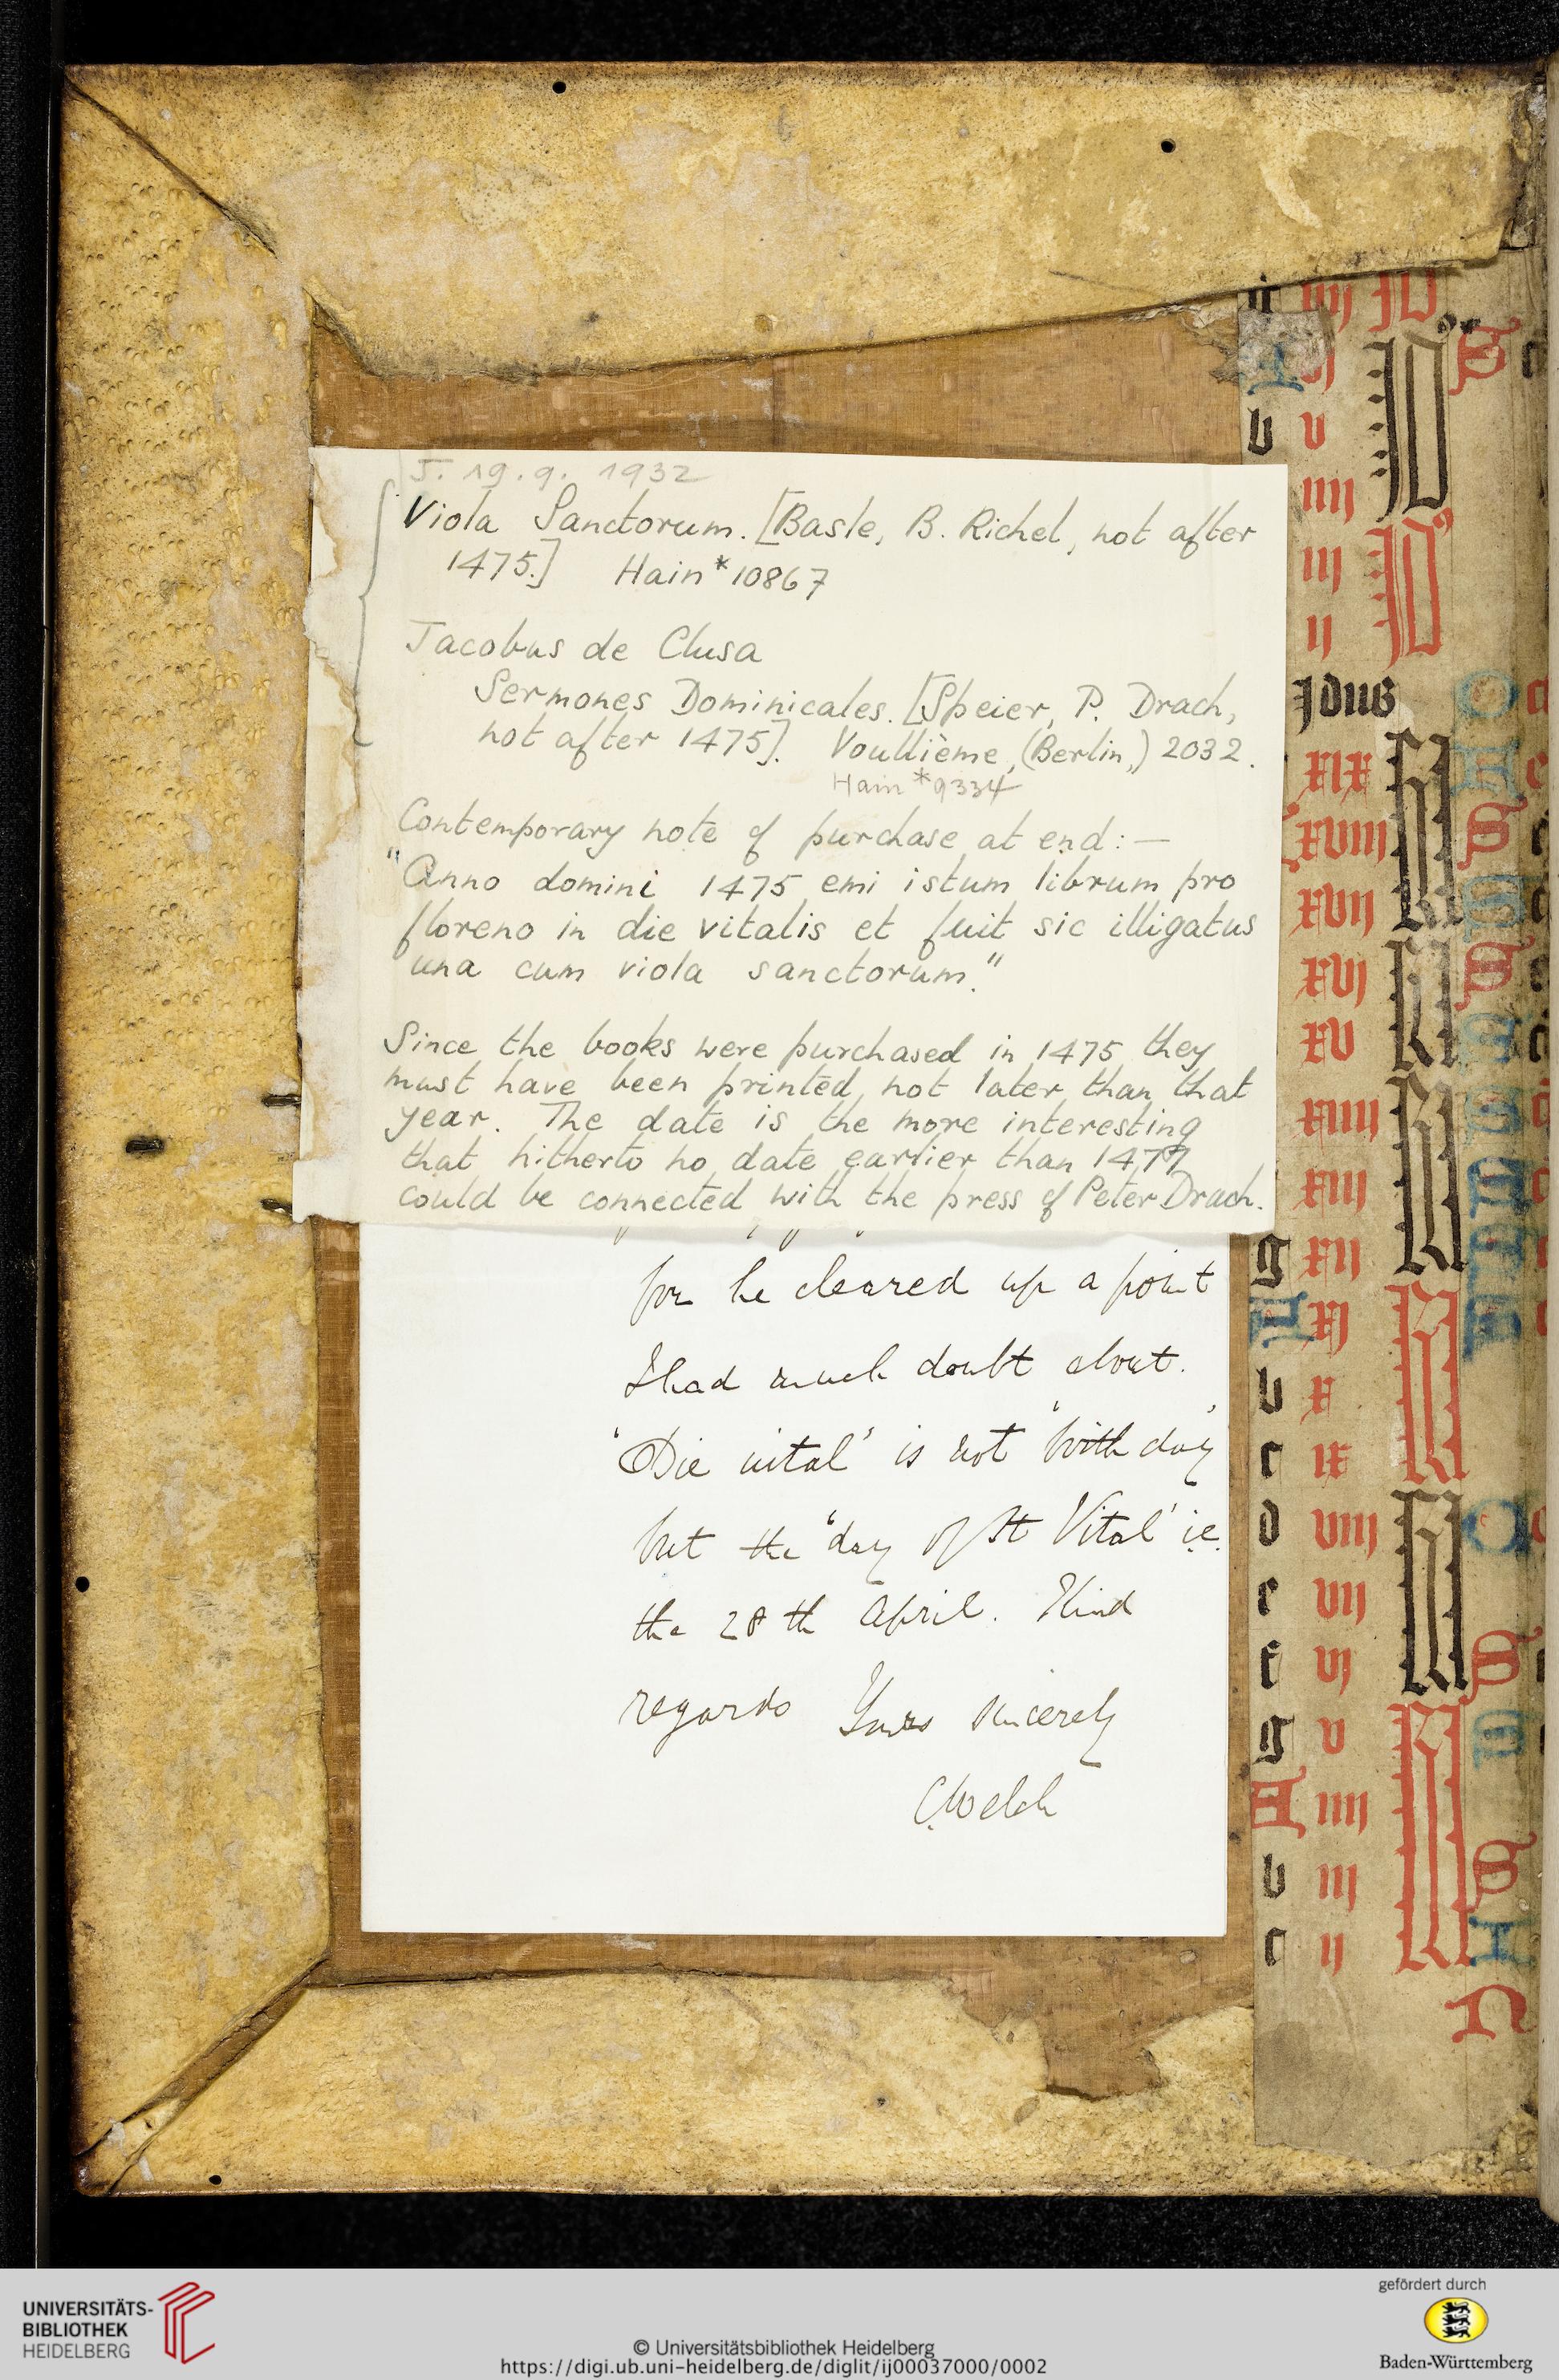 J. 19. 9. 1932
Viola Sanctorum. [Basle, B. Richel, not after
1475.] Hain *10867
Jacobus de Clusa
Sermones Dominicales. [Speier, P. Drach,
not after 1475]. Voullième, (Berlin,) 2032.
Hain *9334
Contemporary note of purchase at end:—
"Anno domini 1475 emi istum librum pro
floreno in die vitalis et fuit sic illigatus
una cum viola sanctorum."
Since the books were purchased in 1475 they
must have been printed not later than that
year. The date is the more interesting
that hitherto no date earlier than 1477
could be connected with the press of Peter Drach.
for he cleared up a point
I had much doubt about.
'Die vital' is not 'birth day'
but the 'day of St Vital' i.e.
the 28th April. Kind
regards Yours sincerely
C. Welch
b v
iiii
iii
ii
Idus
xix
xviii
xvii
xvi
xv
xiiii
xiii
g xii
A xi
b x
c ix
d viii
e vii
f vi
g v
A iiii
b iii
c ii
UNIVERSITÄTS-
BIBLIOTHEK
HEIDELBERG
© Universitätsbibliothek Heidelberg
https://digi.ub.uni-heidelberg.de/diglit/ij00037000/0002
gefördert durch
Baden-Württemberg